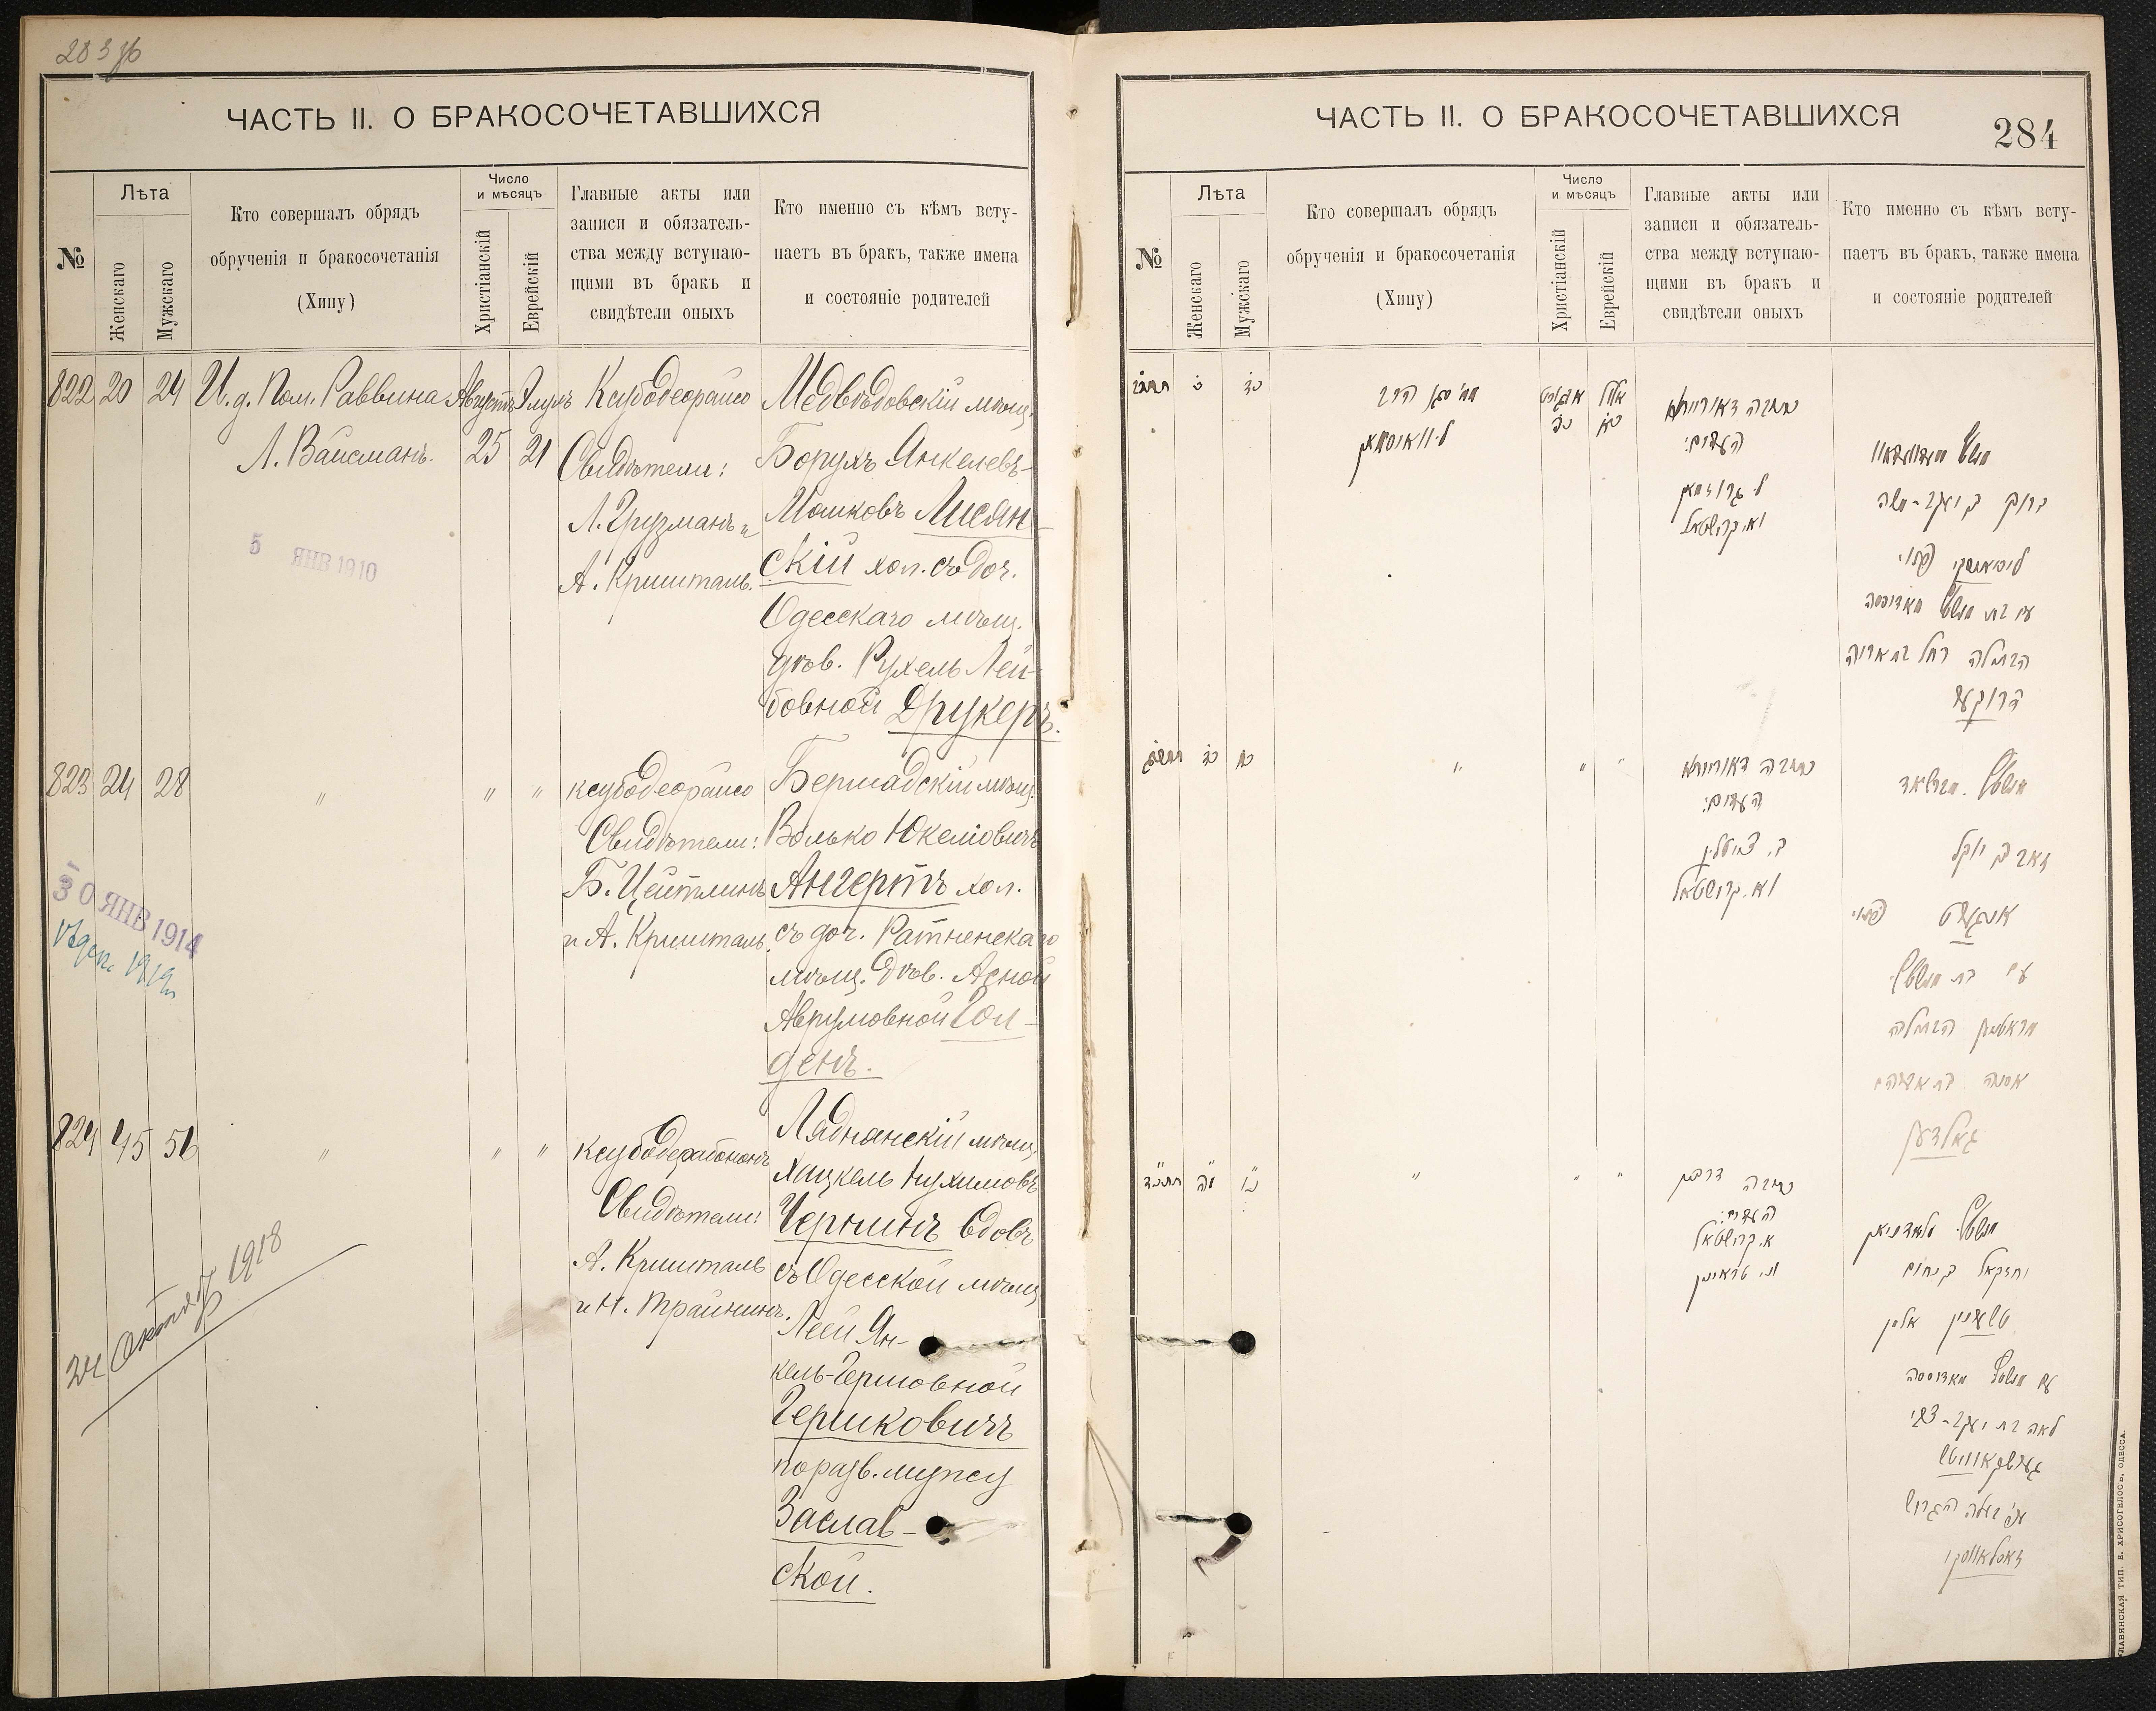 283 об
ЧАСТЬ II. О БРАКОСОЧЕТАВШИХСЯ
№
Лѣта
Женскаго
Мужскаго
Кто совершалъ обрядъ
обрученія и бракосочетанія
(Хипу)
Число
и мѣсяцъ
Христіанскій
Еврейскій
Главные акты или
записи и обязатель-
ства между вступаю-
щими въ бракъ и
свидѣтели оныхъ
Кто именно съ кѣмъ всту-
паетъ въ бракъ, также имена
и состояніе родителей
822 20 24 И. д. Пом. Раввина
Л. Вайсманъ.
Августъ Элулъ
25 21
Ксубодеорайсо
Свидѣтели:
Л. Грузманъ и
А. Кришталь.
Медвѣдовскій мѣщ.
Борухъ Янкелевъ-
Мошковъ Лисян-
скій хол. съ доч.
Одесскаго мѣщ.
дѣв. Рухель Лей-
бовной Друкеръ.
5 ЯНВ 1910
823 24 28 " " "
ксубодеорайсо
Свидѣтели:
Б. Цейтлинъ
и А. Кришталь.
Бершадскій мѣщ.
Волько Юкеліовичъ
Ангертъ хол.
съ доч. Ратненскаго
мѣщ. дѣв. Асной
Аврумовной Гол-
денъ.
30 ЯНВ 1914
824 45 56 " " "
ксубодерабононъ
Свидѣтели:
А. Кришталь
и Н. Трайнинъ.
Ляднянскій мѣщ.
Хацкель Нухимовъ
Чернинъ вдовъ
съ Одесской мѣщ.
Леей Ян-
кель-Гершовной
Гершковичъ
по разв. мужу
Заслав-
ской.
24 Октября 1918
ЧАСТЬ II. О БРАКОСОЧЕТАВШИХСЯ
284
№
Лѣта
Женскаго
Мужскаго
Кто совершалъ обрядъ
обрученія и бракосочетанія
(Хипу)
Число
и мѣсяцъ
Христіанскій
Еврейскій
Главные акты или
записи и обязатель-
ства между вступаю-
щими въ бракъ и
свидѣтели оныхъ
Кто именно съ кѣмъ всту-
паетъ въ бракъ, также имена
и состояніе родителей
תתכב כ כד
הרב
ל. וואיסמאן
אויגוסט אלול
כה כא
כתבה דאורייתא
העדים:
ל. גרוזמאן
וא. קרישטאל
ברוך בן יעקב-משה
ליסיאנסקי
עם בת
הבתולה רחל בת אריה
דרוקער
תתכג כד כח " " "
כתבה דאורייתא
העדים:
ב. צייטלין
וא. קרישטאל
זאב בן יוקל
אנגערט
עם בת
הבתולה
אסנה בת אברהם
גאלדען
תתכד מה נו " " "
כתבה דרבנן
העדים:
א. קרישטאל
ונ. טראינין
יחזקאל בן נחום
טשערנין אלמן
עם
לאה בת יעקב-צבי
גערשקאוויטש
זאסלאווסקי
СЛАВЯНСКАЯ ТИП. Е. ХРИСОГЕЛОСЪ, ОДЕССА.